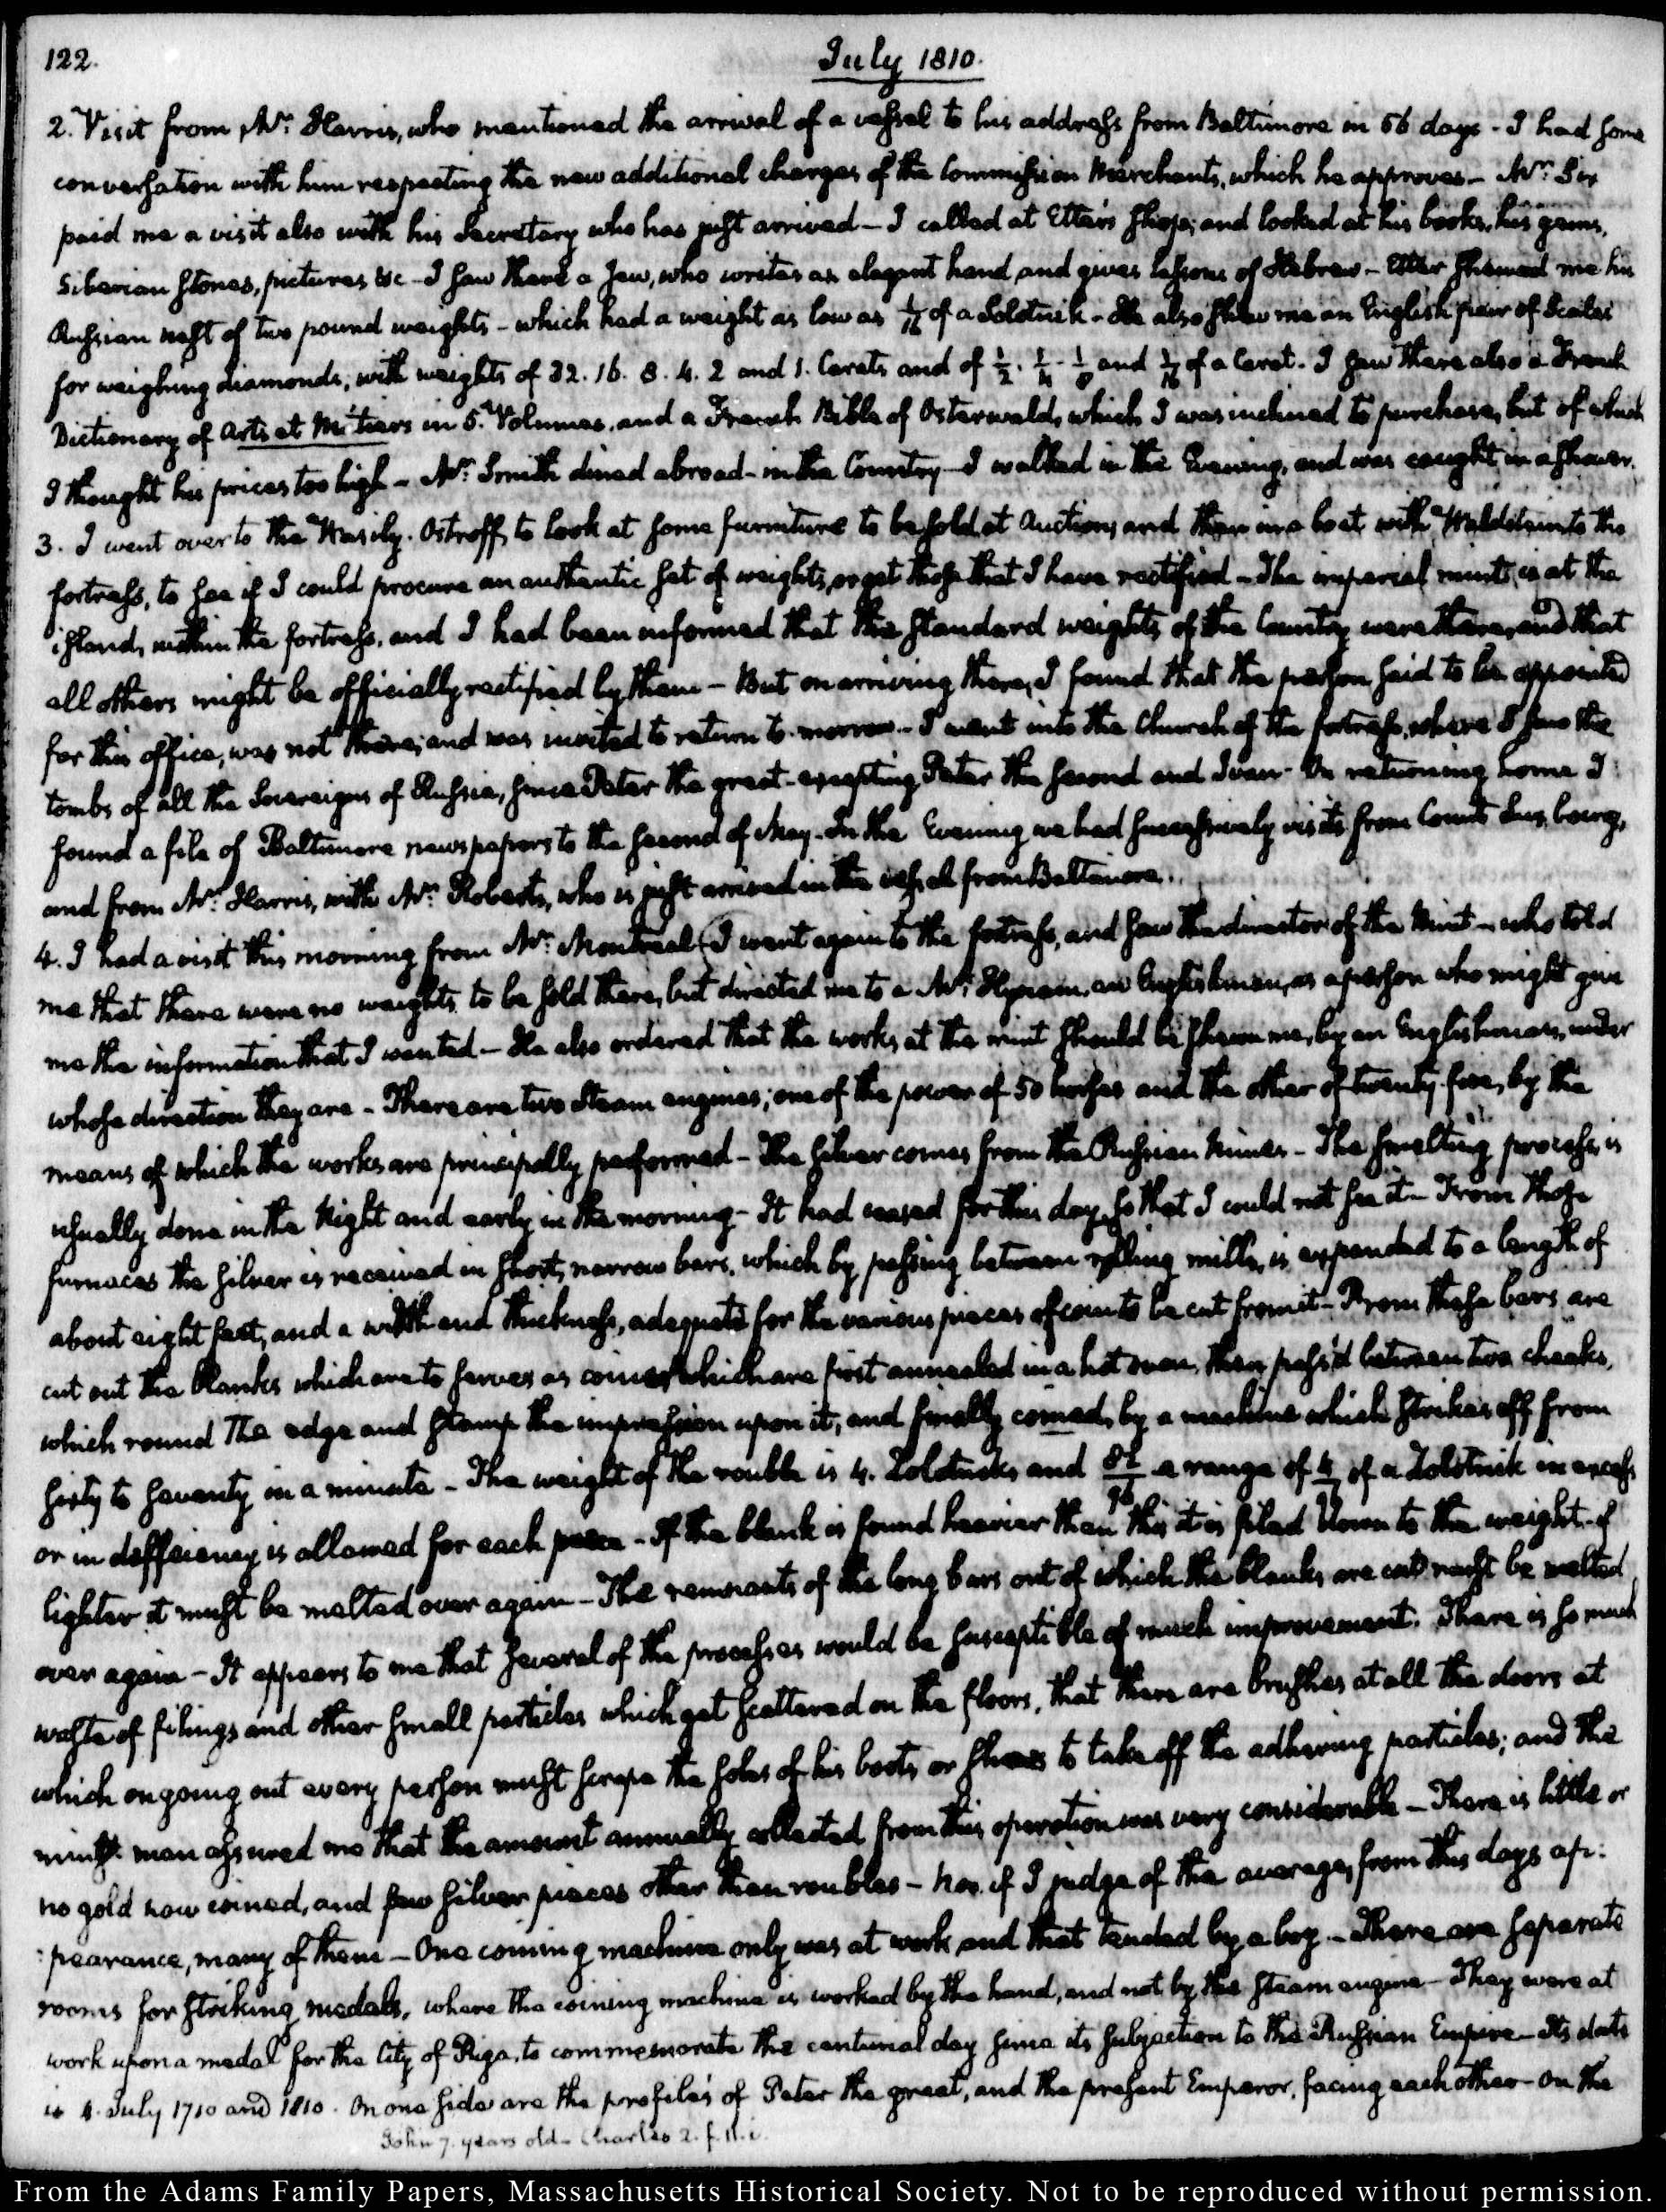 122.
July 1810.
2. Visit from Mr. Harris, who mentioned the arrival of a vessel to his address from Baltimore in 56 days - I had some
conversation with him respecting the new additional charges of the Commission Merchants, which he approves - Mr. Six
paid me a visit also with his Secretary who has just arrived - I called at Etter's shop, and looked at his books, his gems,
Siberian stones, pictures &c - I saw there a Jew, who writes an elegant hand, and gives lessons of Hebrew - Etter shewed me his
Russian nest of two pound weights - which had a weight as low as 1/16 of a Solotnik - He also shew me an English pair of Scales
for weighing diamonds, with weights of 32. 16. 8. 4. 2 and 1. Carats and of 1/2. 1/4. 1/8 and 1/16 of a Carat. I saw there also a French
Dictionary of Arts et Métiers in 5. Volumes, and a French Bible of Osterwald, which I was inclined to purchase, but of which
I thought his prices too high - Mr. Smith dined abroad - in the Country - I walked in the Evening, and was caught in a shower.
3. I went over to the Wasily-Ostroff, to look at some furniture to be sold at Auction, and then in a boat with Waldstein to the
fortress, to see if I could procure an authentic set of weights, or get those that I have rectified - The imperial mint is at the
island, within the fortress, and I had been informed that the standard weights of the Country were there, and that
all others might be officially rectified by them - But on arriving there, I found that the person said to be appointed
for this office, was not there; and was invited to return to-morrow - I went into the Church of the fortress, where I saw the
tombs of all the Sovereigns of Russia, since Peter the great - excepting Peter the second and Ivan - On returning home I
found a file of Baltimore newspapers to the second of May. In the Evening we had successively visits from Count
and from Mr. Harris, with Mr. Roberts, who is just arrived in the vessel from Baltimore.
4. I had a visit this morning from Mr. Montreal (I went again to the fortress, and saw the director of the Mint - who told
me that there were no weights to be sold there, but directed me to a Mr. an Englishman, as a person who might give
me the information that I wanted - He also ordered that the works at the mint should be shewn me, by an Englishman, under
whose direction they are - There are two Steam engines; one of the power of 50 horses and the other of twenty-five, by the
means of which the works are principally performed - The silver comes from the Russian Mines - The smelting process, is
usually done in the Night and early in the morning - It had ceased for this day, so that I could not see it - From those
furnaces the silver is received in short, narrow bars, which by passing between rolling mills, is expanded to a length of
about eight feet, and a width and thickness, adequate for the various pieces of coin to be cut from it - From these bars are
cut out the blanks which are to serves as coins which are first annealed in a hot oven, then pass'd between two cheeks,
which round the edge and stamp the impression upon it; and finally coined, by a machine which strikes off from
sixty to seventy in a minute - The weight of the rouble is 4. Zolotniks and 82/96 a range of of a Zolotnik in excess
or in defficiency is allowed for each piece - If the blank is found heavier than this it is filed down to the weight - if
lighter it must be melted over again - The remnants of the long bars out of which the blanks are cut must be melted
over again - It appears to me that several of the processes would be susceptible of much improvement. There is so much
waste of filings and other small particles which get scattered on the floors, that there are brushes at all the doors at
which on going out every person must scrape the soles of his boots or shoes to take off the adhering particles; and the
mint man assured me that the amount annually collected from this operation was very considerable - There is little or
no gold now coined, and few silver pieces other than roubles - nor if I judge of the average, from this days ap:
:pearance, many of them - One coining machine only was at work and that tended by a boy - There are separate
rooms for striking medals, where the coining machine is worked by the hand, and not by the steam engine - They were at
work upon a medal for the City of Riga, to commemorate the centunal day since its subjection to the Russian Empire - Its date
is 4. July 1710 and 1810. On one side are the profiles of Peter the great, and the present Emperor, facing each other - on the
John 7. years old - Charles 2. f. 11. i.
From the Adams Family Papers, Massachusetts Historical Society. Not to be reproduced without permission.